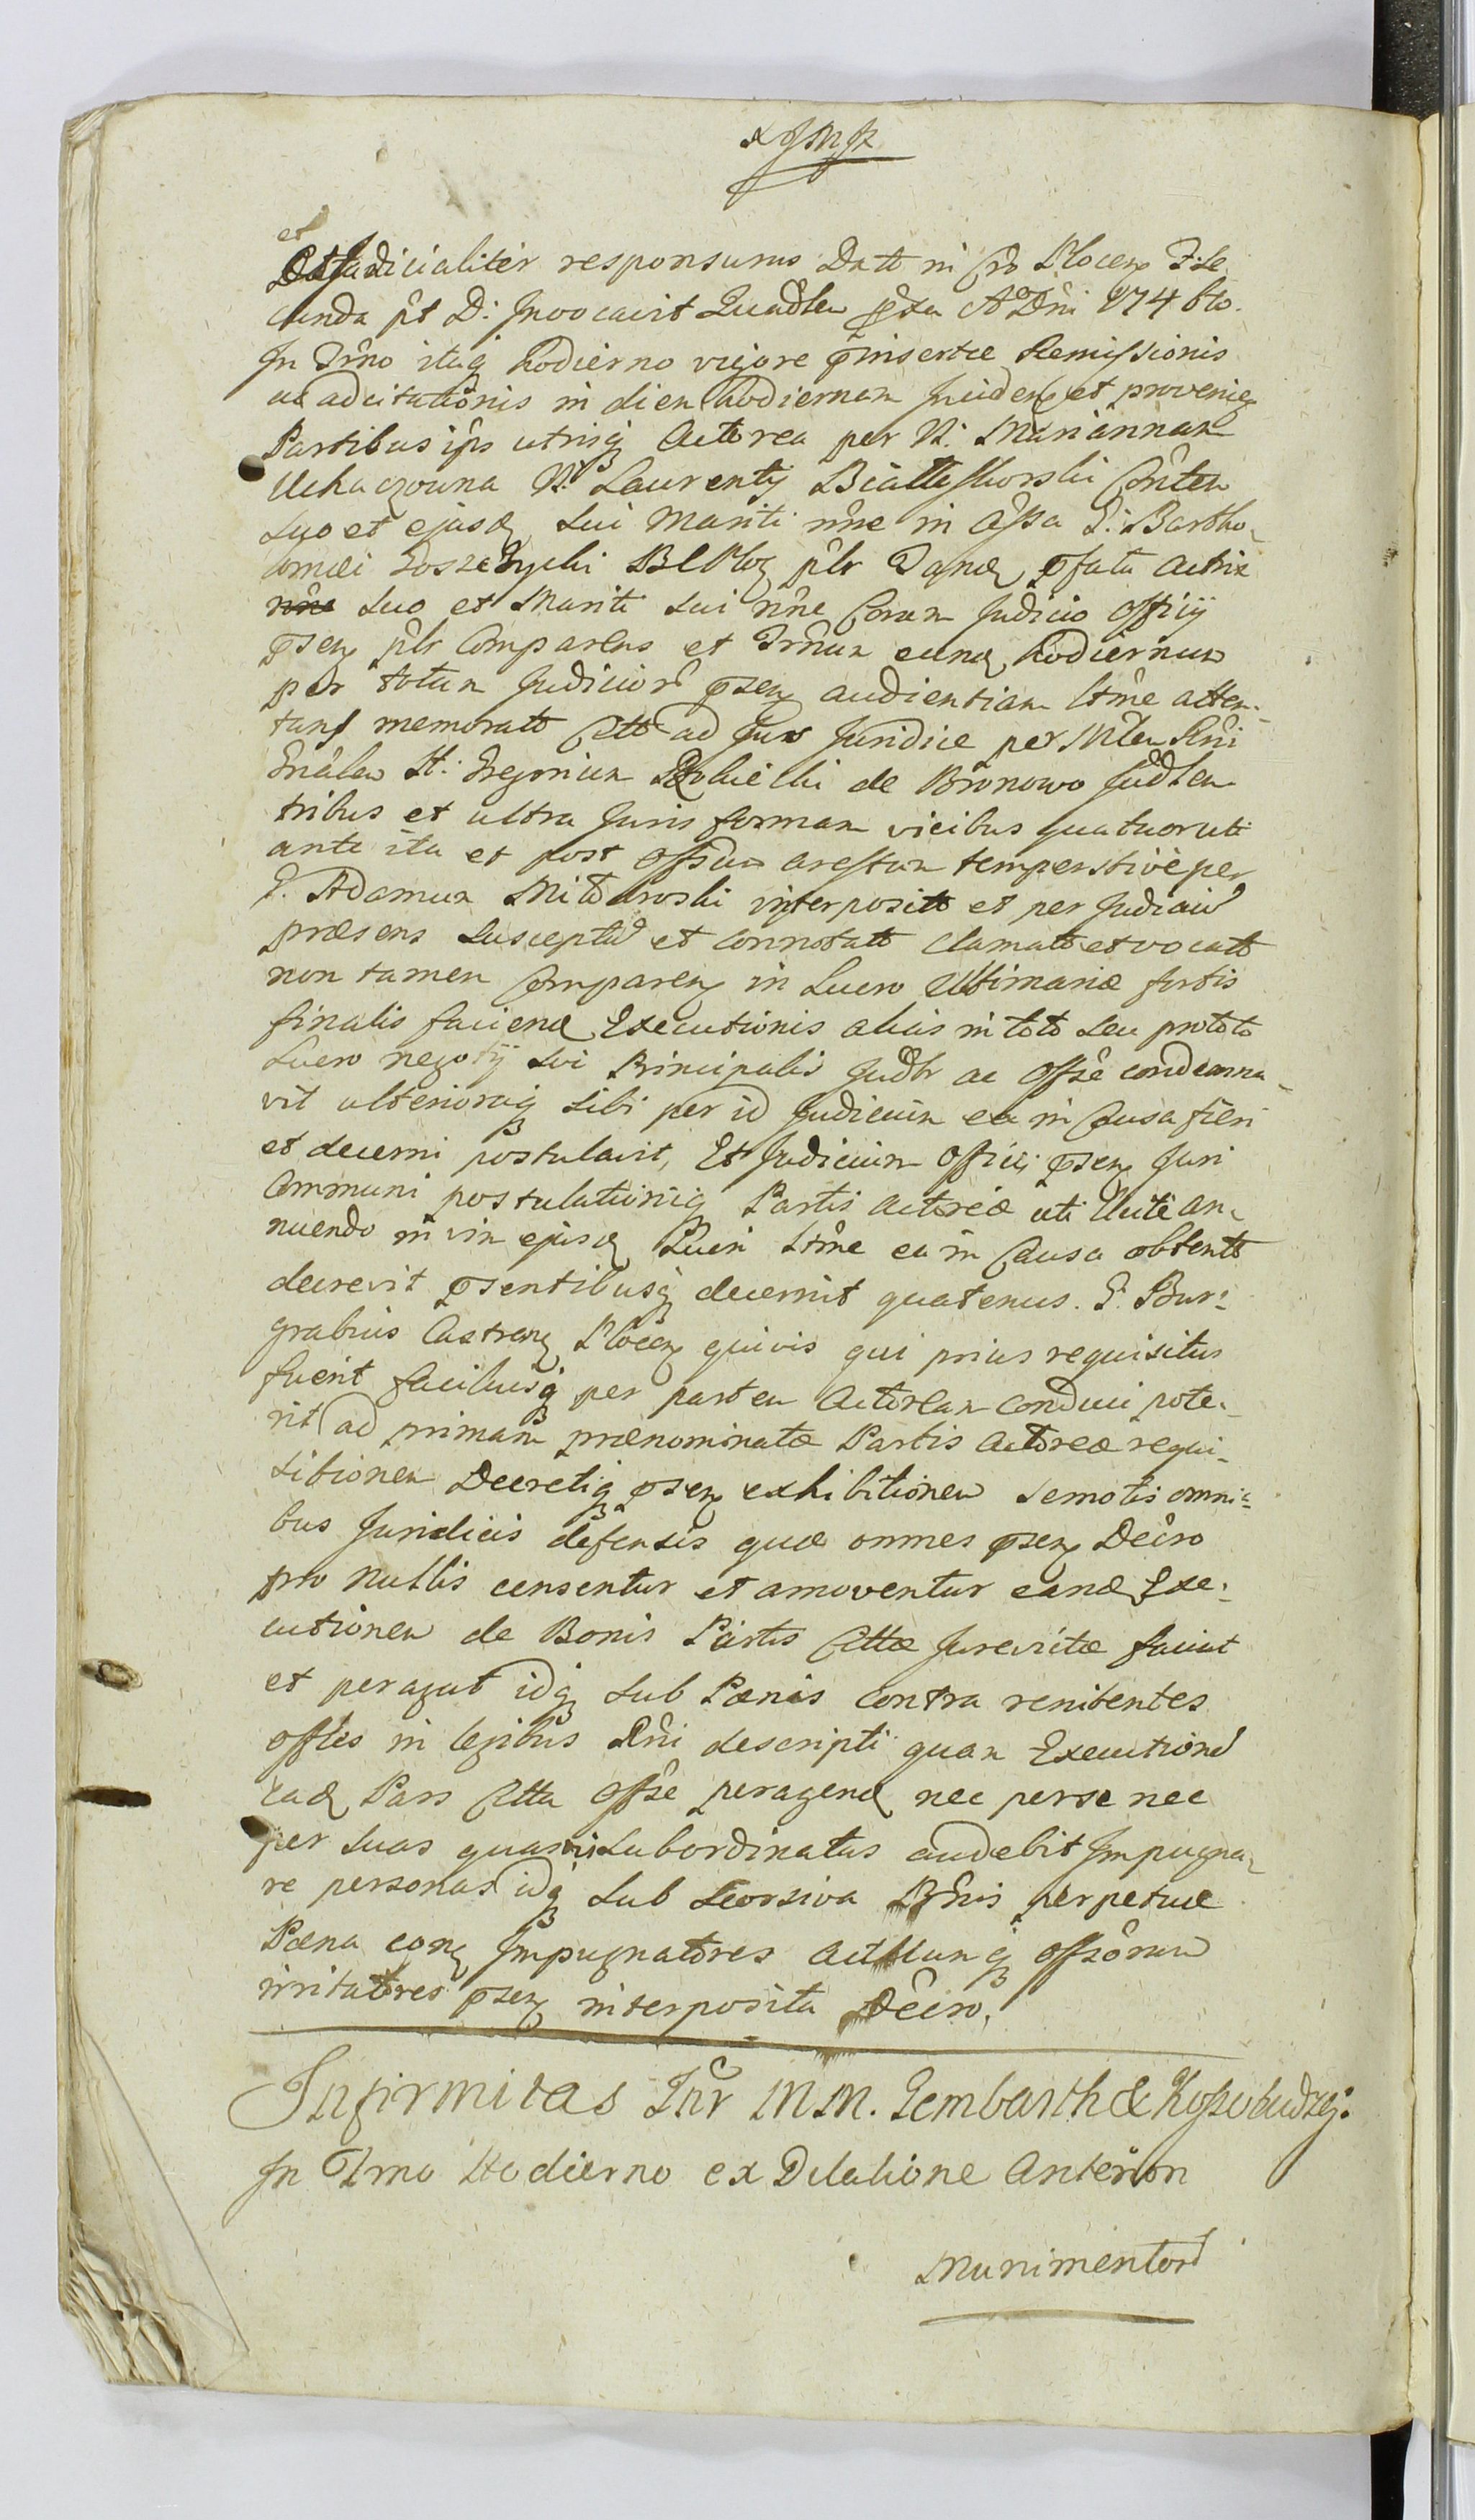 et
Judicialiter responsurus Datt in Cro Plocen F: Se
cunda pt D: Invocavit Quadlem pxa A Dni 174 6to.
In Trno itaq hodierno vigore pinsertæ Remissionis
ac adcitationis in diem hodiernam Inciden et provenien
Partibus ips utrisq Actorea per N: Mariannam
N. Laurentij Cnten
suo et ejusd sui Mariti nne in Assa G: Bartho-
lomæi pfata Actrix
nne suo et Mariti sui nne Coram Judicio Officij
psen plr Comparens et Trnum eund hodiernum
per totam Judicior psen audientiam ltme atten-
tans memorato Ctto ad Jura Juridice per Mtem Rni
Gnalem H: Gregorium de Bronowo Judlem
tribus et ultra Juris formam vicibus quatuor uti
ante ita et post Offsum arestum tempestive per
G. Adamum interposito et per Judiciu
præsens susceptu et connotato clamato et vocato
non tamen Comparen in Lucro Ultimariæ sortis
finalis faciend Executionis alias in toto seu pro toto
Lucro negotij sui Principalis Judlr ac Offse condemna-
vit ulterioraq sibi per id Judicium ea in Causa fieri
et decerni postulavit, Et Judicium Officij psen Juri
Communi postulationiq Partis Actoreæ uti licite an-
nuendo in vim ejusd Lucri ltme ea in Causa obtento
decrevit psentibusq decernit quatenus. G. Bur-
grabius Castren Plocen quivis qui prius requisitus
fuerit faciliusq per partem Actoream conduci pote-
rit ad primam prænominatæ Partis Actoreæ requi-
sitionem Decretiq psen exhibitionem semotis omni-
bus Juridicis defensis quæ omnes psen Decro
pro nullis censentur et amoventur eand Exe-
cutionem de Bonis Partis Cttæ Jurevictæ faciat
et peragat idq sub Pænis contra renitentes
offles in legibus Rni descriptis quam Executione
ead Pars Ctta Offse peragend nec per se nec
per suas quasvis subordinatas audebit Impugna-
re personas idq sub seorsiva Bnis perpetuæ
Pæna con Impugnatores Actuumq Offsorum
irritatores psen interposita Decro.
Infirmitas Inr M M. Gembarth &
In Trno Hodierno ex Dilatione Anterior
Munimentor